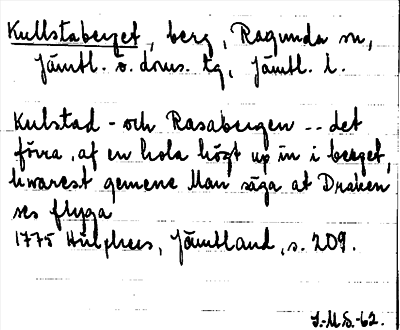 Kullstaberget, berg, Ragunda sn,
Jämtl. ö. doms. tg, Jämtl. l.
Kulstad- och Rasabergen -- det
förra, af en hola högt up in i berget,
hwarest gemene Man säga at Draken
ses flyga
1775 Hülphers, Jämtland, s. 209.
J.-M.S.-62.